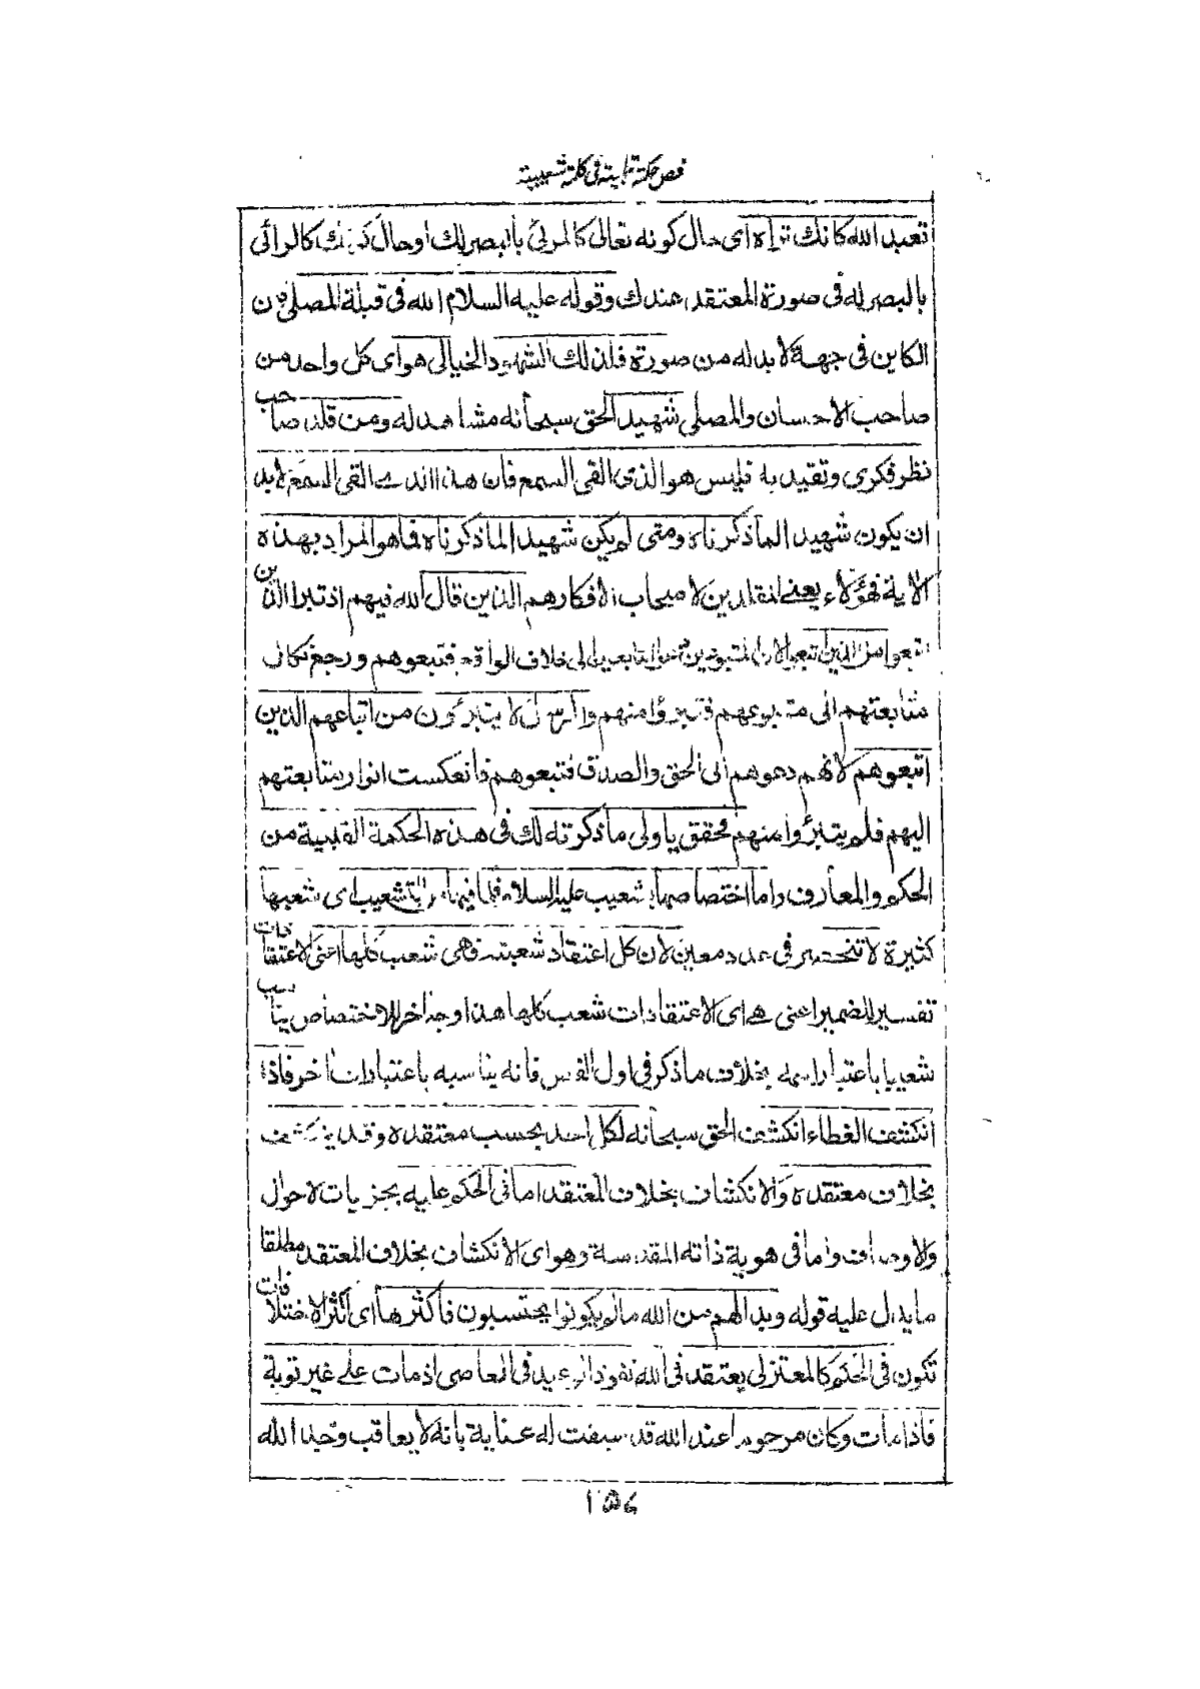 فص حكمة قلبية فى كلمة شعيبية
تعبد الله كانك تراه اى حال كونه تعالى كالمرئى بالبصر لك او حال كونك كالرائى
بالبصر له فى صورة المعتقد عندك وقوله عليه السلام الله فى قبلة المصلى من
الكاين فى جهة لا بد له من صورة فلذلك الشهود الخيالى هو اى كل واحد من
صاحب الاحسان والمصلى شهيد الحق سبحانه مشاهد له ومن قلد صاحب
نظر فكرى وتقيد به فليس هو الذى القى السمع فان هذا الذى القى السمع لابد
ان يكون شهيد الما ذكرناه ومتى لم يكن شهيد الما ذكرناه فما هو المراد بهذه
الاية فهؤلاء يعنى المقلدين لاصحاب الافكار هم الذين قال الله فيهم اذ تبرا الذين
اتبعوا من الذين اتبعوا لان المتبوعين دعوا التابعين الى خلاف الواقع فتبعوهم ورجع نكال
متابعتهم الى متبوعهم فتبرؤا منهم والرسل لا يتبرئون من اتباعهم الذين
اتبعوهم لانهم دعوهم الى الحق والصدق فتبعوهم فانعكست انوار متابعتهم
اليهم فلم يتبرؤا منهم فحقق يا ولى ما ذكرته لك فى هذه الحكمة القلبية من
الحكم والمعارف واما اختصاصها بشعيب عليه السلام فلما فيها من التشعيب اى شعبها
كثيرة لا تنحصر فى عدد معين لان كل اعتقاد شعبته فهى شعب كلها اعنى الاعتقادات
تفسير للضمير اعنى هى اى الاعتقادات شعب كلها هذا وجه اخر للاختصاص يناسب
شعيبا باعتبار اسمه بخلاف ما ذكر فى اول الفص فانه يناسبه باعتبارات اخر فاذا
انكشف الغطاء انكشف الحق سبحانه لكل احد بحسب معتقده وقد ينكشف
بخلاف معتقده والانكشاف بخلاف المعتقد اما فى الحكم عليه بجزيات الاحوال
والاوصاف واما فى هوية ذاته المقدسة وهو اى الانكشاف بخلاف المعتقد مطلقا
ما يدل عليه قوله وبدا لهم من الله مالم يكونوا يحتسبون فاكثرها اى اكثر الاختلافات
تكون فى الحكم كالمعتزلى يعتقد فى الله نفوذ الوعيد فى العاصى اذ مات على غير توبة
فاذا مات وكان مرحوما عند الله قد سبقت له عناية بانه لا يعاقب وجد الله
١٥٤